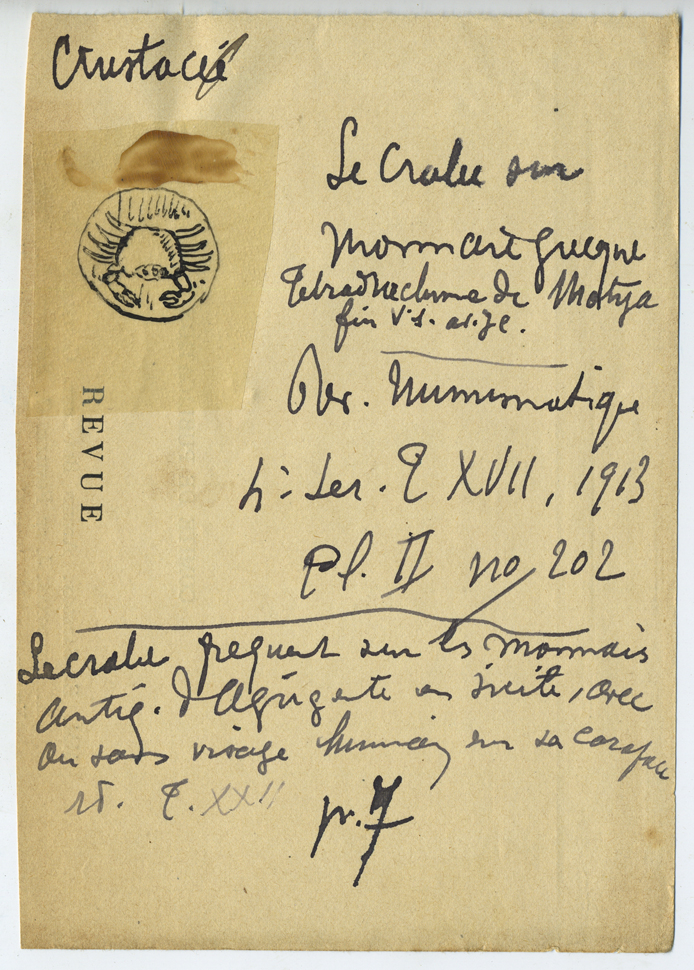 Crustacé
Le Crabe sur
Monnaie grecque
Tétradrachme de Motya
fin V s. av. J.C.
Rev. Numismatique
REVUE
4e Ser. T XVII, 1913
Pl. II no 202
Le crabe fréquent sur les monnaies
antiq. d'Agrigente en Sicile, avec
ou sans visage humain sur sa carapace
id. T. XXII
pr. 7